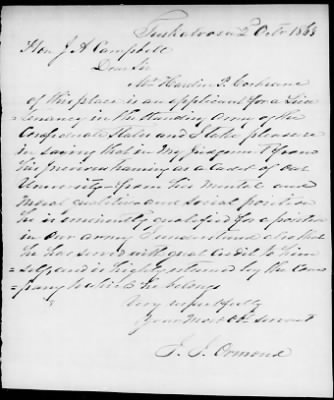 Tuskaloosa 2d Octr 1863
Hon J. A Campbell
Dear Sir
Mr Hardin P. Cochrane
of this place is an applicant for a Lieu
=tenancy in the standing Army of the
Confederate States and I take pleasure
in saying that in my judgment from
his previous training as a Cadet of our
University - from his mental and
moral qualities and social position
he is eminently qualified for a position
in our army I understand also that
he has served with great credit to him
=self, and is highly esteemed by the Com
=pany to which he belongs
Very respectfully
Your Most Obt servant
J. J. Ormond